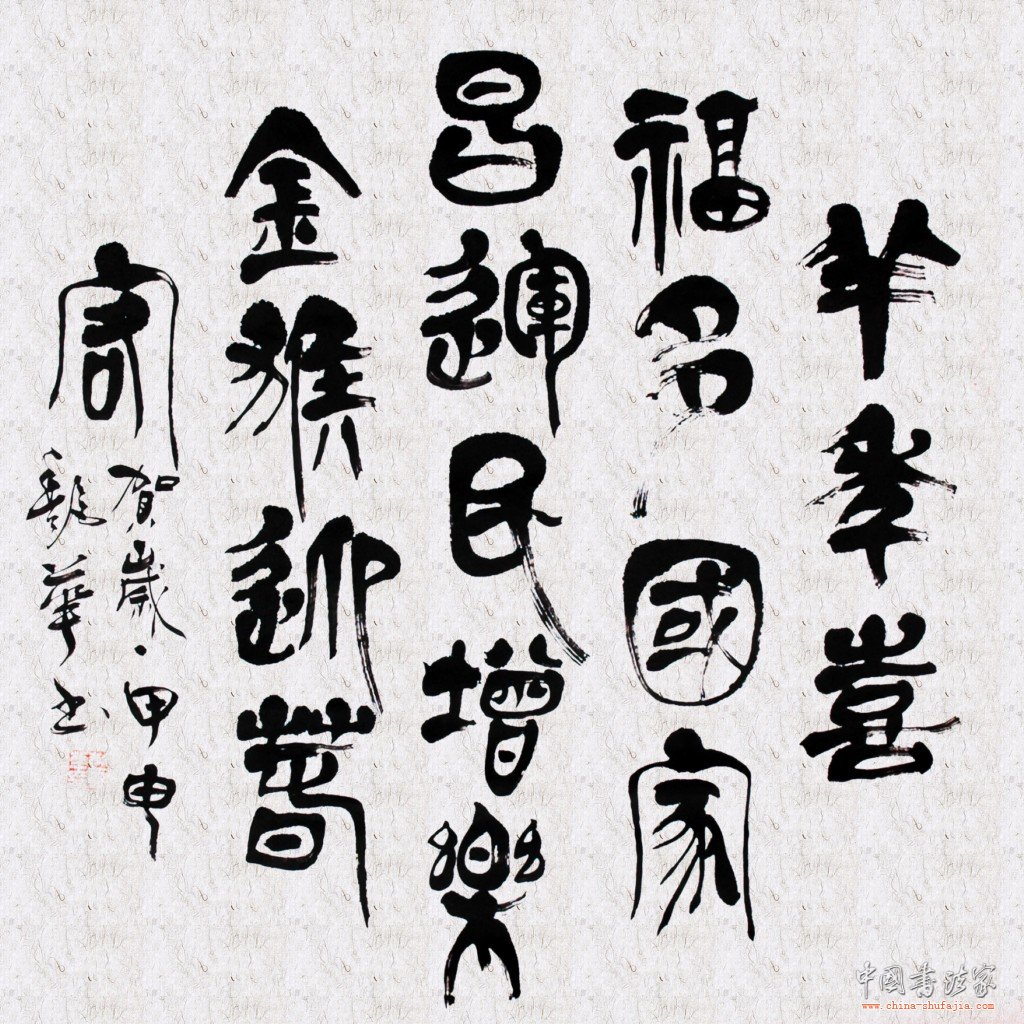 羊年喜
福國家
昌運民增樂
金猴迎春
賀歲·甲申
華書
中國書法家
www.china-shufajia.com